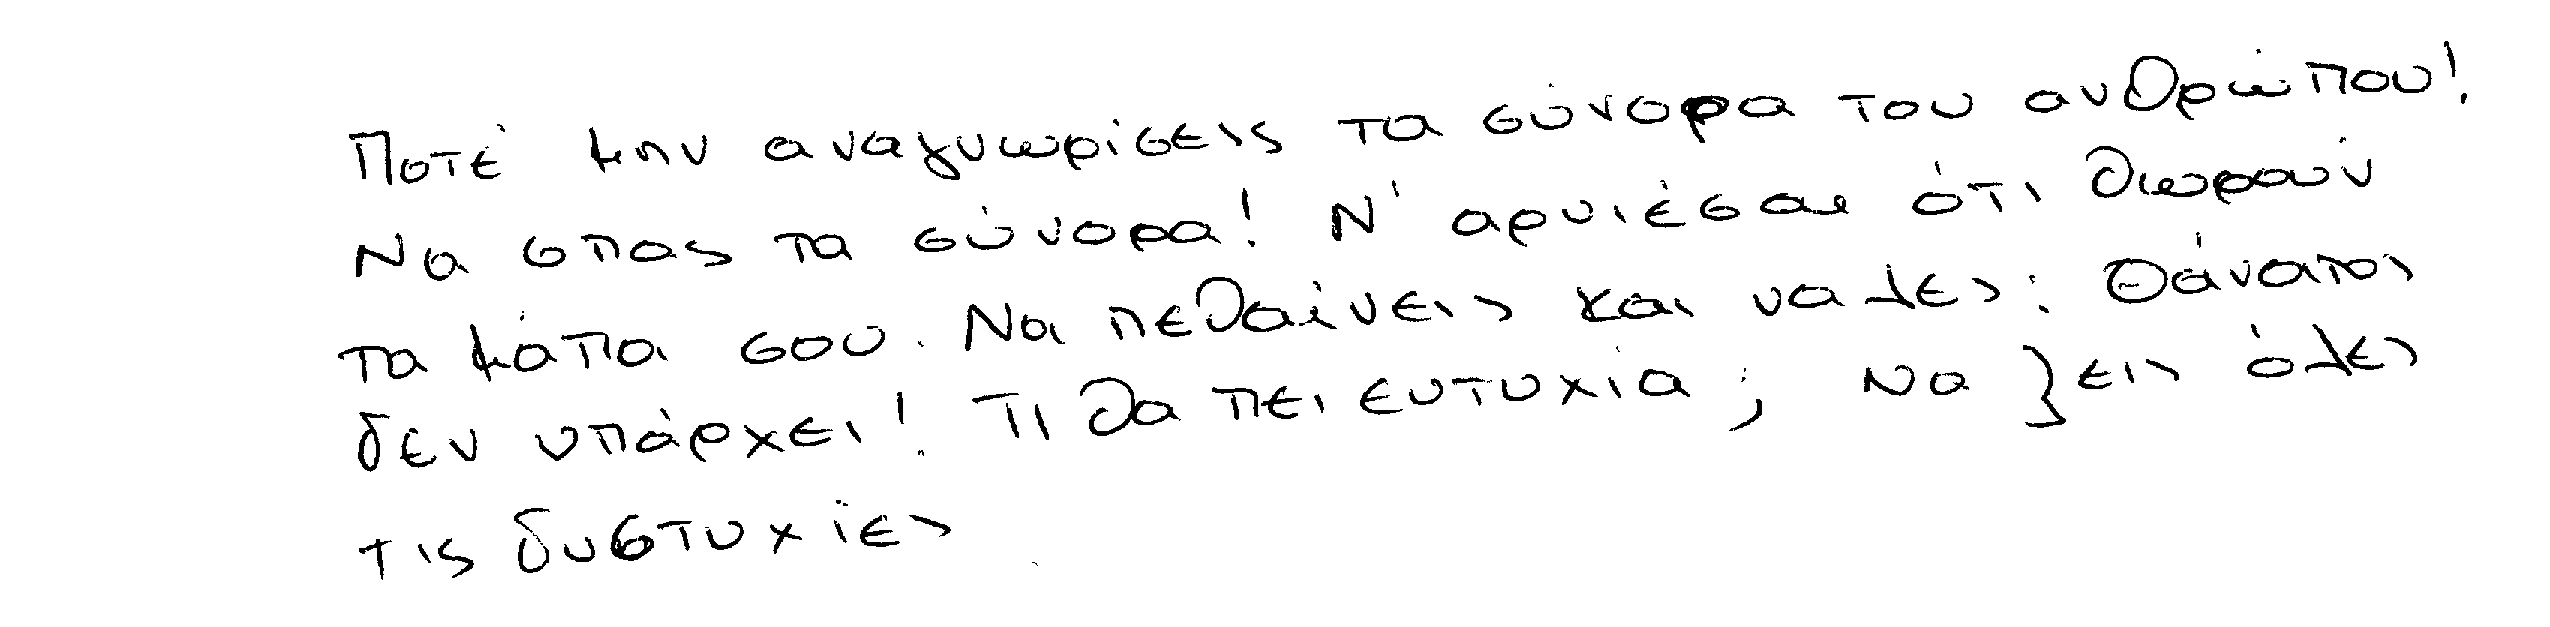 Ποτέ μην αναγνωρίσεις τα σύνορα του ανθρώπου!
Να σπας τα σύνορα! Ν' αρνιέσαι ότι θωρούν
τα μάτια σου. Να πεθαίνεις και να λες: Θάνατος
δεν υπάρχει! Τι θα πει ευτυχία; Να ζεις όλες
τις δυστυχίες